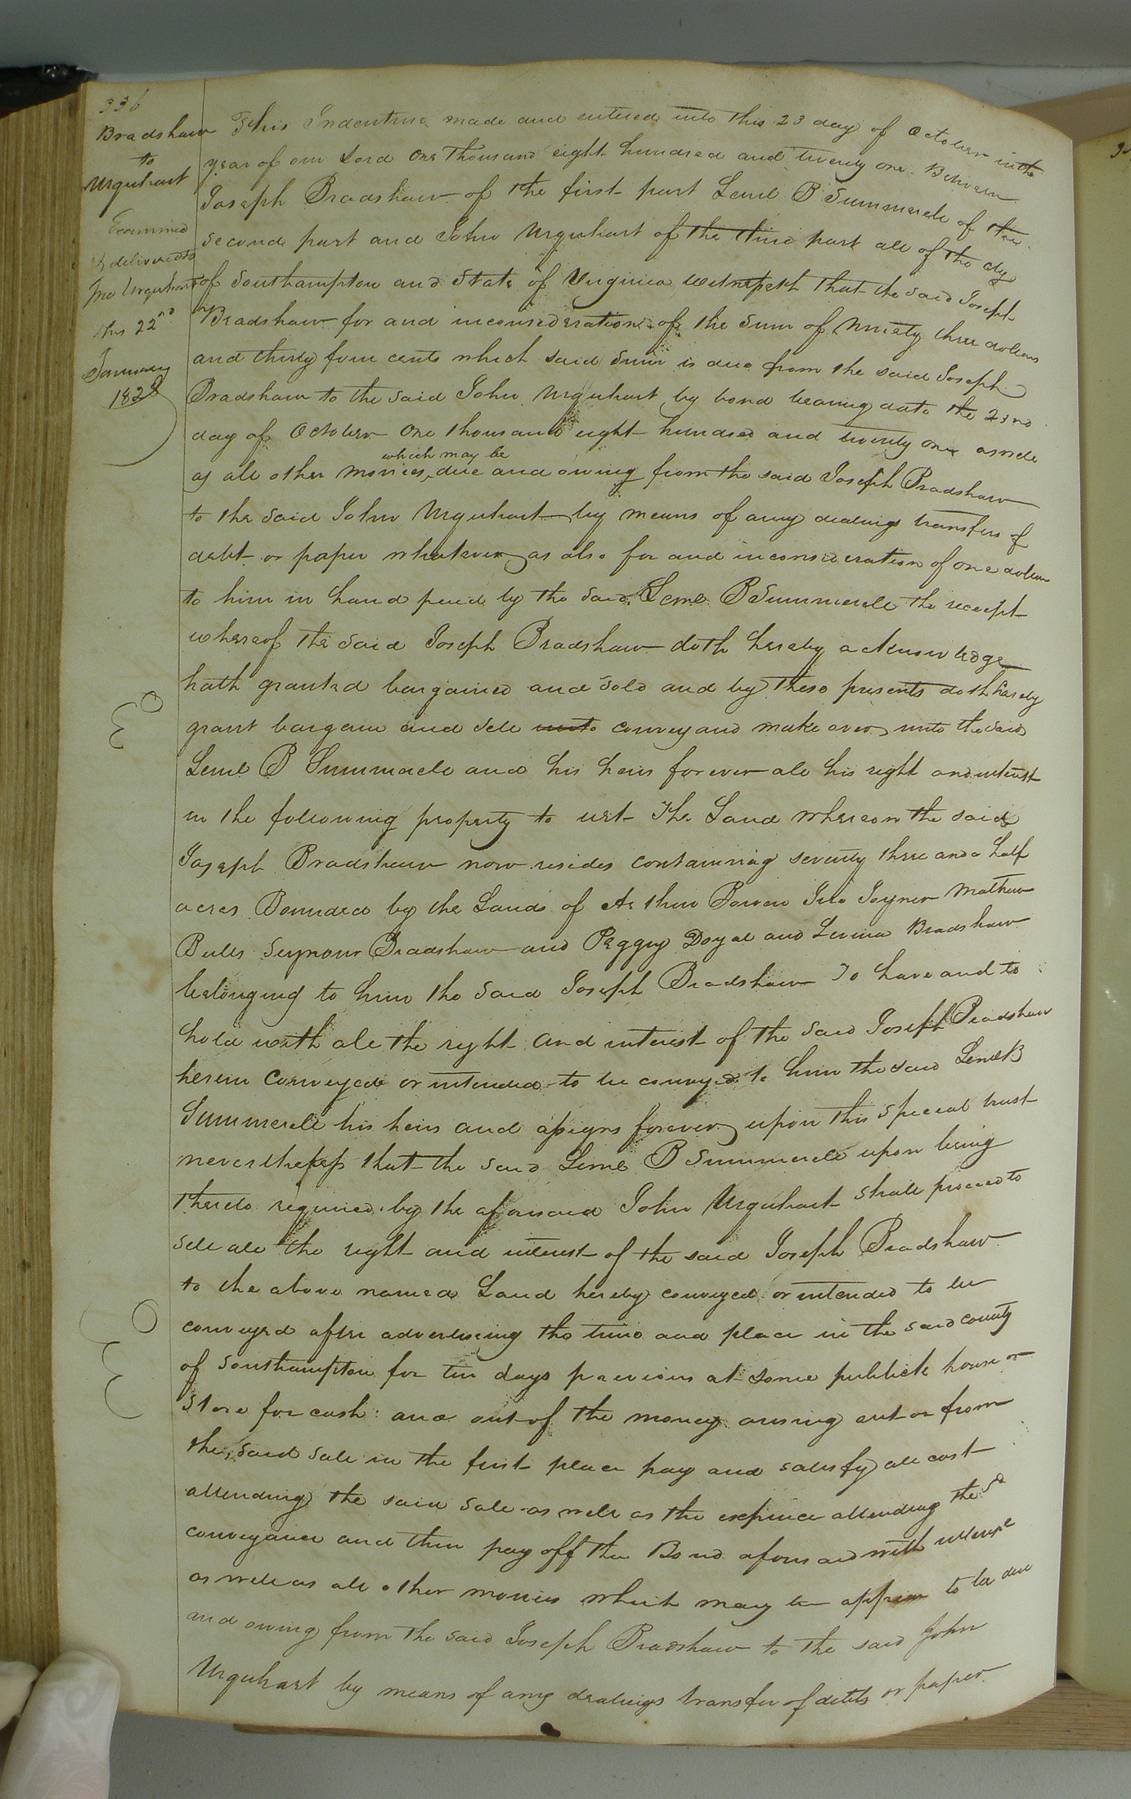 336
Bradshaw
to
Urquhart
Examined
& delivered to
Jno Urquhart
this 22nd
January
1828
This Indenture made and entered into this 23 day of October in the
year of our Lord One thousand eight hundred and twenty one Between
Joseph Bradshaw of the first part Leml B Summerell of the
second part and John Urquhart of the third part all of the Cty
of Southampton and State of Virginia witnesseth that the said Joseph
Bradshaw for and inconsideration of the Sum of Ninety three dollars
and thirty four cents which said Sum is due from the said Joseph
Bradshaw to the said John Urquhart by bond bearing date the 23rd
day of October One thousand eight hundred and twenty one as well
which may be
as all other monies due and owing from the said Joseph Bradshaw
to the said John Urquhart by means of any dealings transfers of
debt or paper whatever as also for and inconsideration of one dollar
to him in hand paid by the said Leml B Summerell the receipt
whereof the said Joseph Bradshaw doth hereby acknowledge
hath granted bargained and sold and by these presents doth hereby
grant bargain and sell unto convey and make over unto the said
Leml B Summerell and his heirs forever all his right and interest
in the following property to wit The Land whereon the said
Joseph Bradshaw now resides containing seventy three and a half
acres Bounded by the Lands of Arthur Joyner Mathew
Bulls Seymour Bradshaw and Peggy Doyal and Levina Bradshaw
belonging to him the said Joseph Bradshaw To have and to
hold with all the right and interest of the said Joseph Bradshaw
herein conveyed or intended to be conveyed to him the said Leml B
Summerell his heirs and assigns forever upon this special trust
nevertheless that the said Leml B Summerell upon being
thereto required by the aforesaid John Urquhart shall proceed to
sell all the right and interest of the said Joseph Bradshaw
to the above named Land hereby conveyed or intended to be
conveyed after advertising the time and place in the said county
of Southampton for ten days previous at some publick house or
store for cash and out of the money arising out or from
the said sale in the first place pay and satisfy all cost
attending the said sale as well as the expence attending the sd
conveyance and then pay off the Bond aforesaid with interest
as well as all other monies which may be appear to be due
and owing from the said Joseph Bradshaw to the said John
Urquhart by means of any dealings transfer of debts or paper